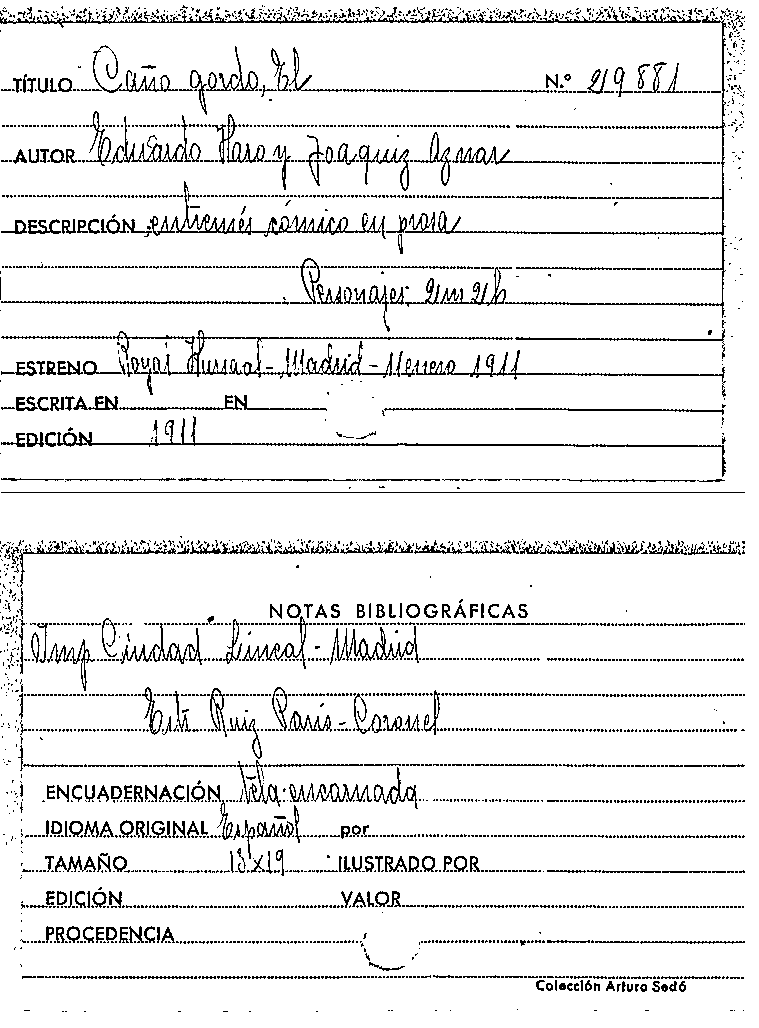 TÍTULO Caño gordo, El N.º 219881
AUTOR Eduardo Haro y Joaquiz Aznar
DESCRIPCIÓN entremés cómico en prosa
Personajes: 2m 2h
ESTRENO Royal Kursaal - Madrid - Enero 1911
ESCRITA EN EN
EDICIÓN 1911
NOTAS BIBLIOGRÁFICAS
Imp Ciudad Lineal - Madrid
Ests Ruiz París - Coronel
ENCUADERNACIÓN tela encarnada
IDIOMA ORIGINAL Español por
TAMAÑO 13x19 ILUSTRADO POR
EDICIÓN VALOR
PROCEDENCIA
Colección Arturo Sedó